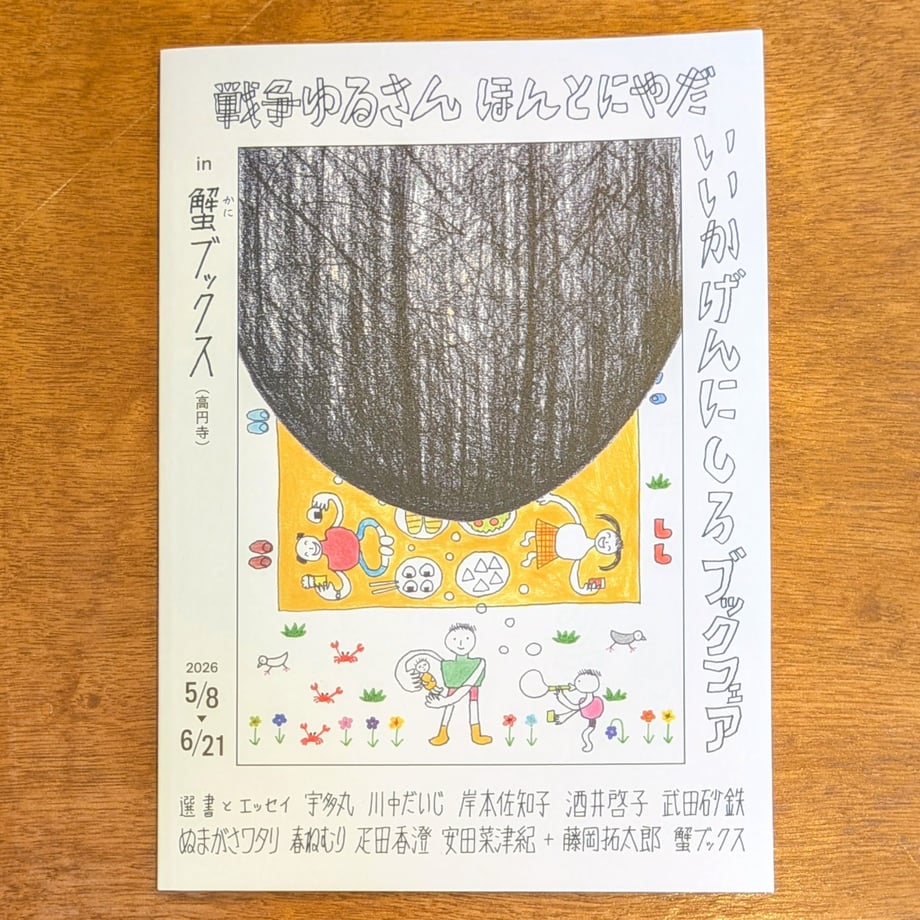 戦争ゆるさん ほんとにやだ
いいかげんにしろ ブックフェア
in 蟹ブックス
かに
(高円寺)
2026
5/8
▼
6/21
選書とエッセイ 宇多丸 川中だいじ 岸本佐知子 酒井啓子 武田砂鉄
ぬまがさワタリ 春ねむり 疋田香澄 安田菜津紀+藤岡拓太郎 蟹ブックス